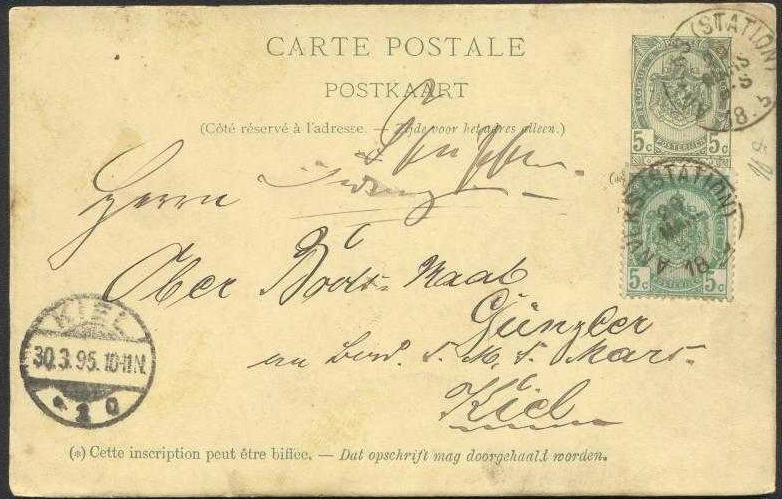 CARTE POSTALE
POSTKAART
(Côté réservé à l'adresse. — Zijde voor het adres alleen.)
5c 5c
ANVERS (STATION)
18
Herrn
Ober Boots-Maat
Günzler
an Bord S. M. S. Mars.
Kiel
5c 5c
ANVERS (STATION)
MARS
18
KIEL
30.3.95.10-11N.
* 1 a
(*) Cette inscription peut être biffée. — Dat opschrift mag doorgehaald worden.